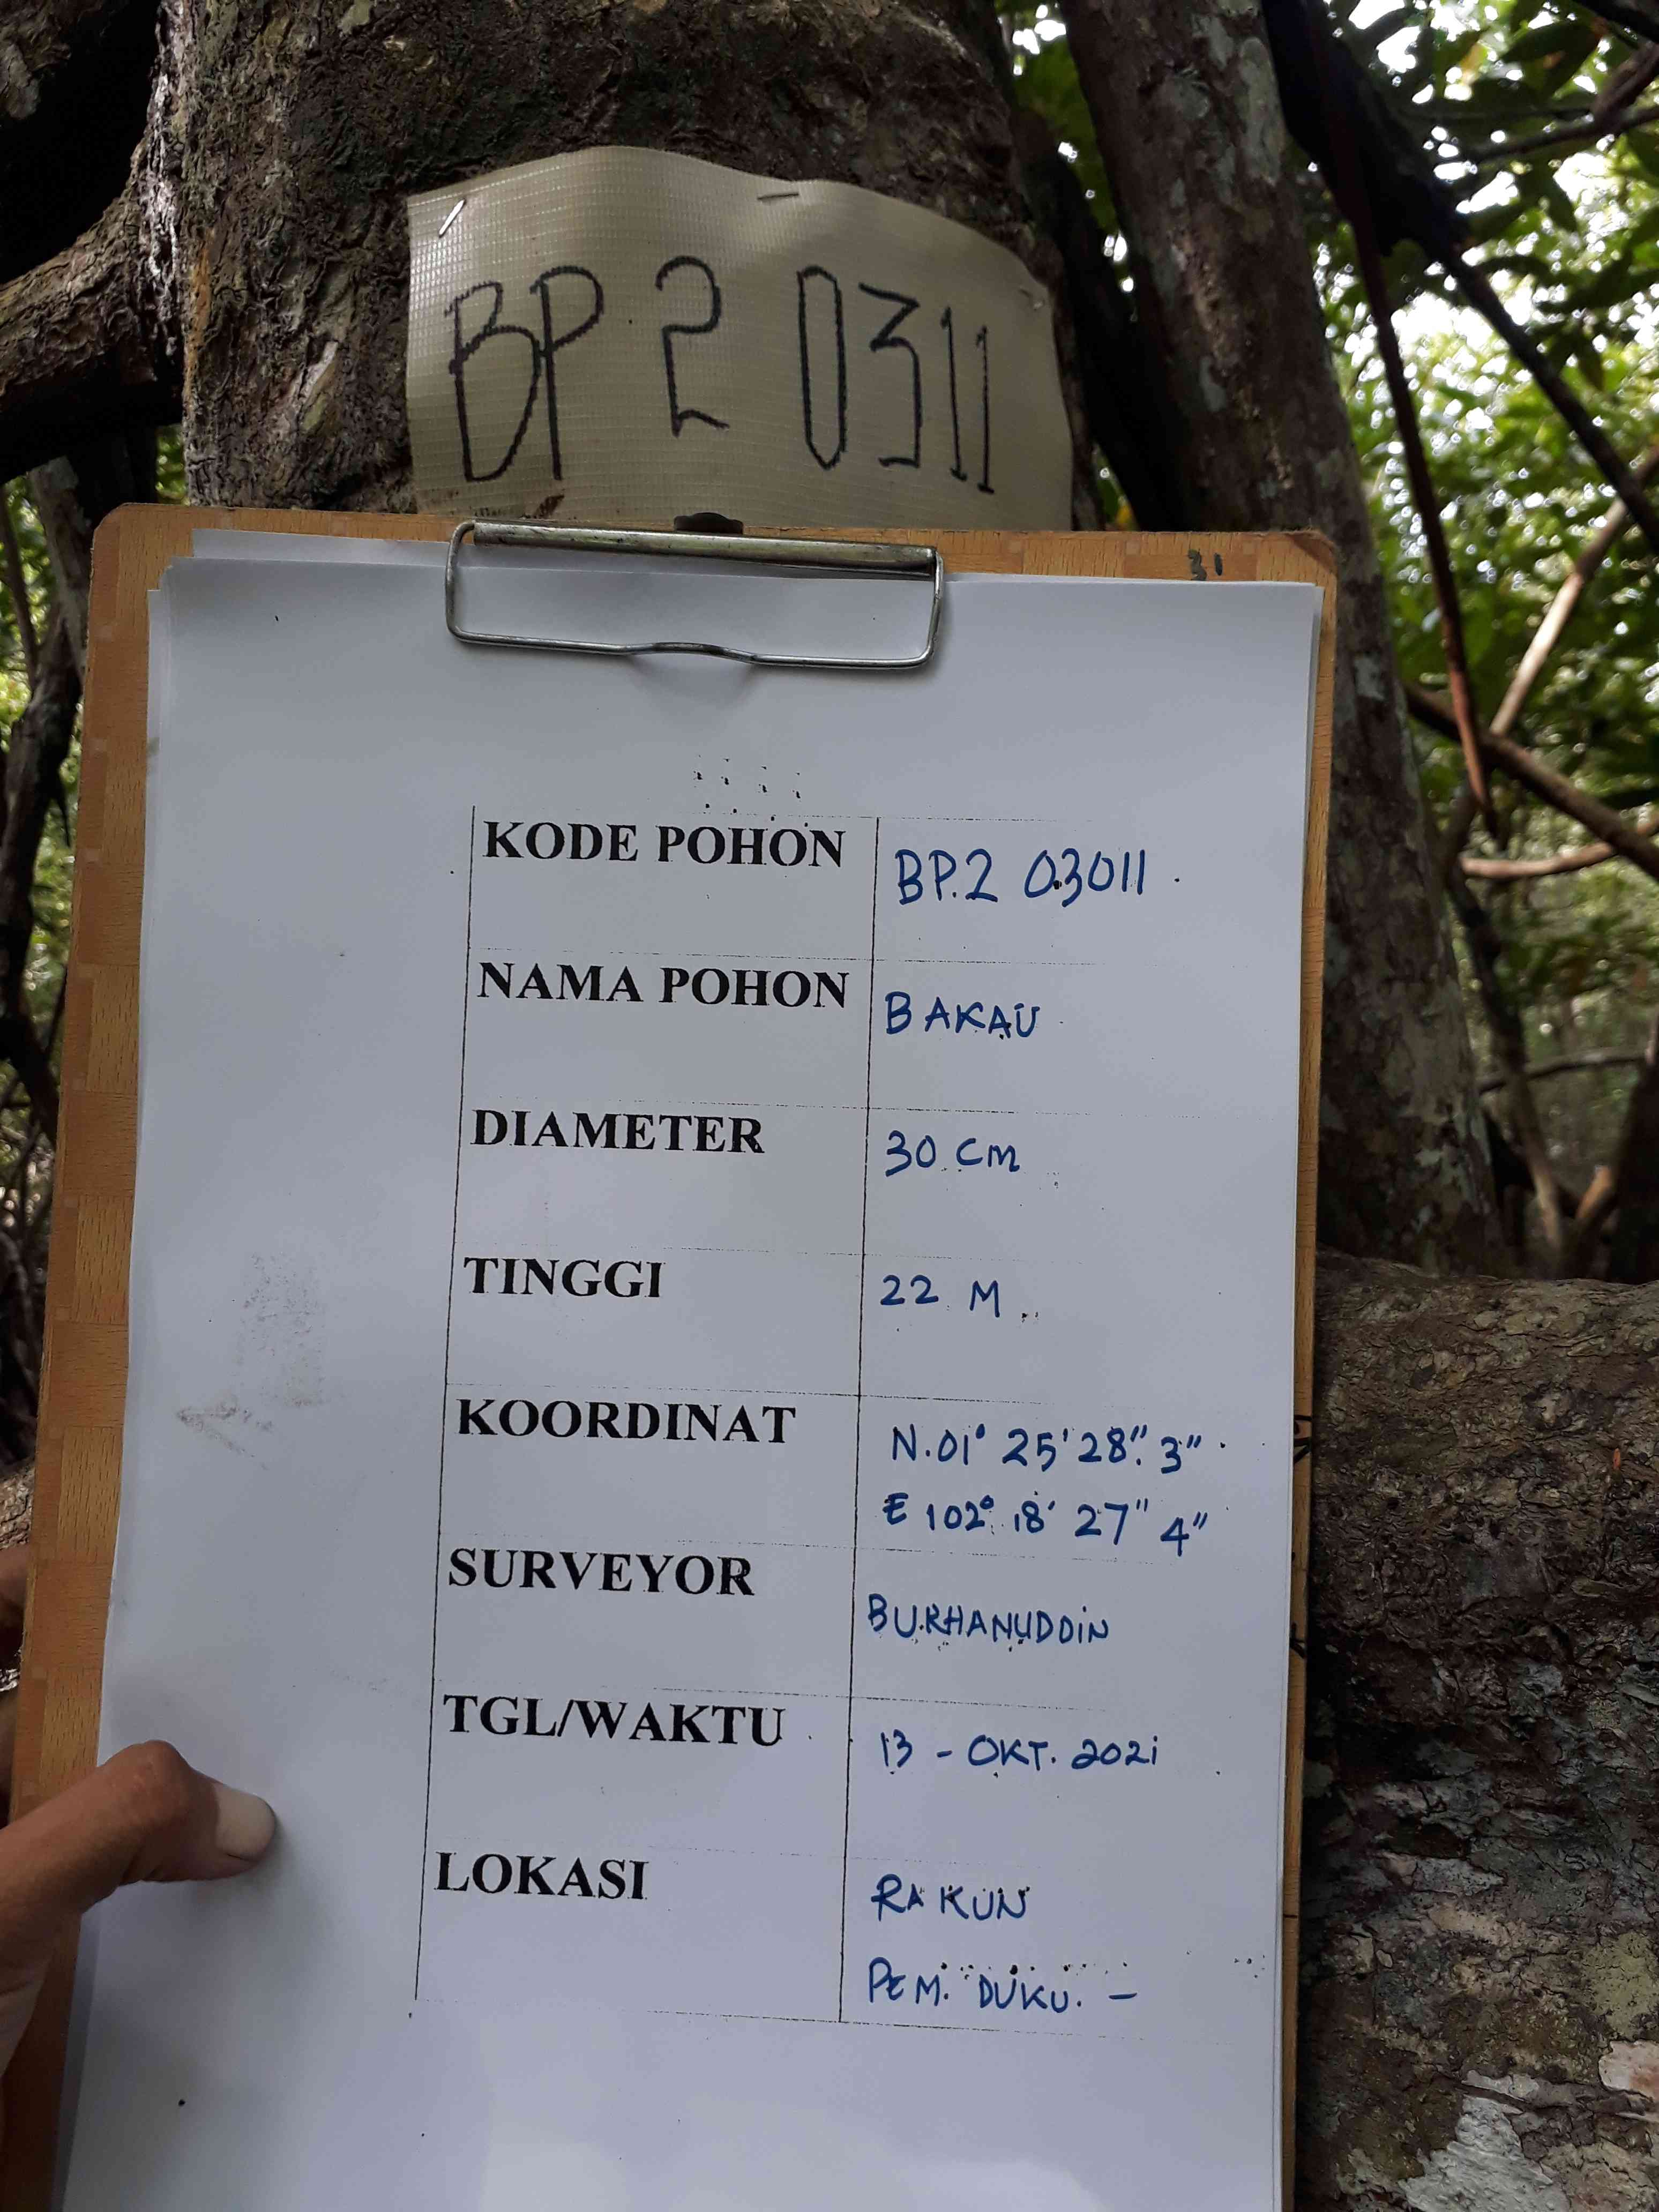 BP 2 0311
31
KODE POHON BP.2 03011
NAMA POHON BAKAU
DIAMETER 30 Cm
TINGGI 22 M
KOORDINAT N.01° 25' 28". 3"
E 102° 18' 27" 4"
SURVEYOR BURHANUDDIN
TGL/WAKTU 13 - OKT. 2021
LOKASI RAKUN
PEM. DUKU. -